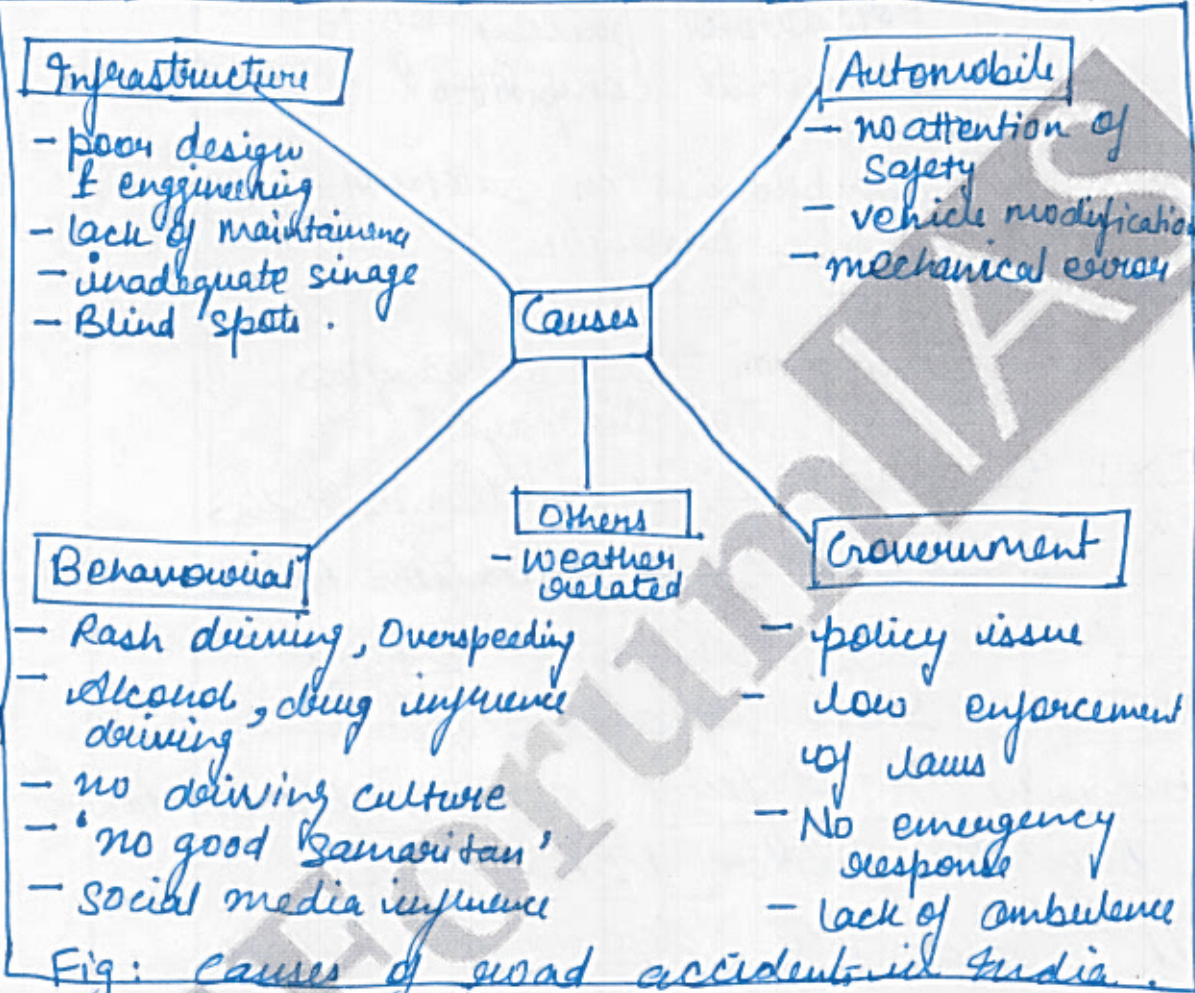 Infrastructure
- poor design
& enggineering
- lack of maintainena
- inadequate sinage
- Blind spots.
Automobile
- no attention of
safety
- vehicle modification
- mechanical error
Causes
Others
- weather
related
Behavowial
- Rash driving, Overspeeding
- Alcohol, drug influence
driving
- no driving culture
- 'no good Samaritan'
- social media influence
Government
- policy issue
- low enforcement
of laws
- No emergency
response
- lack of ambulence
Fig: Causes of road accident in India.
ForumIAS